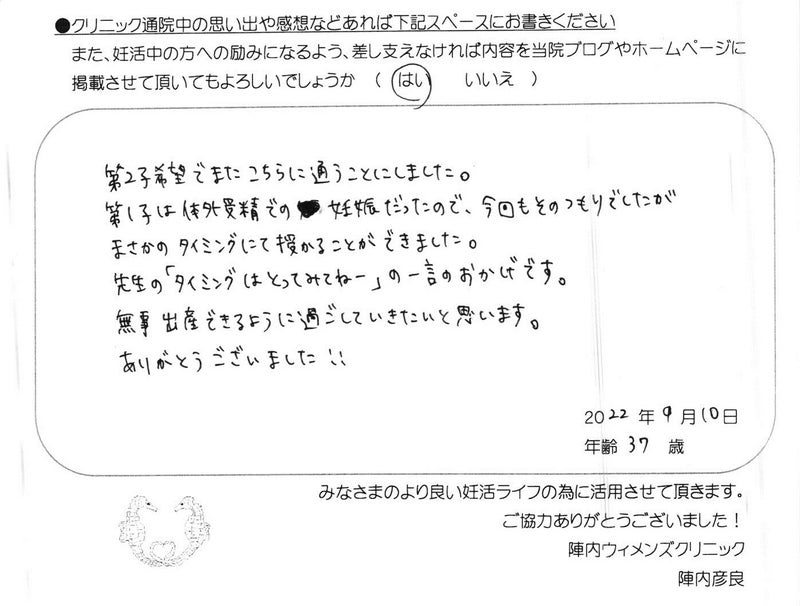 ●クリニック通院中の思い出や感想などあれば下記スペースにお書きください
また、妊活中の方への励みになるよう、差し支えなければ内容を当院ブログやホームページに
掲載させて頂いてもよろしいでしょうか （ はい いいえ ）
第2子希望でまたこちらに通うことにしました。
第1子は体外受精での妊娠だったので、今回もそのつもりでしたが
まさかのタイミングにて授かることができました。
先生の「タイミングはとってみてねー」の一言のおかげです。
無事出産できるように過ごしていきたいと思います。
ありがとうございました!!
2022年9月10日
年齢 37 歳
みなさまのより良い妊活ライフの為に活用させて頂きます。
ご協力ありがとうございました！
陣内ウィメンズクリニック
陣内彦良